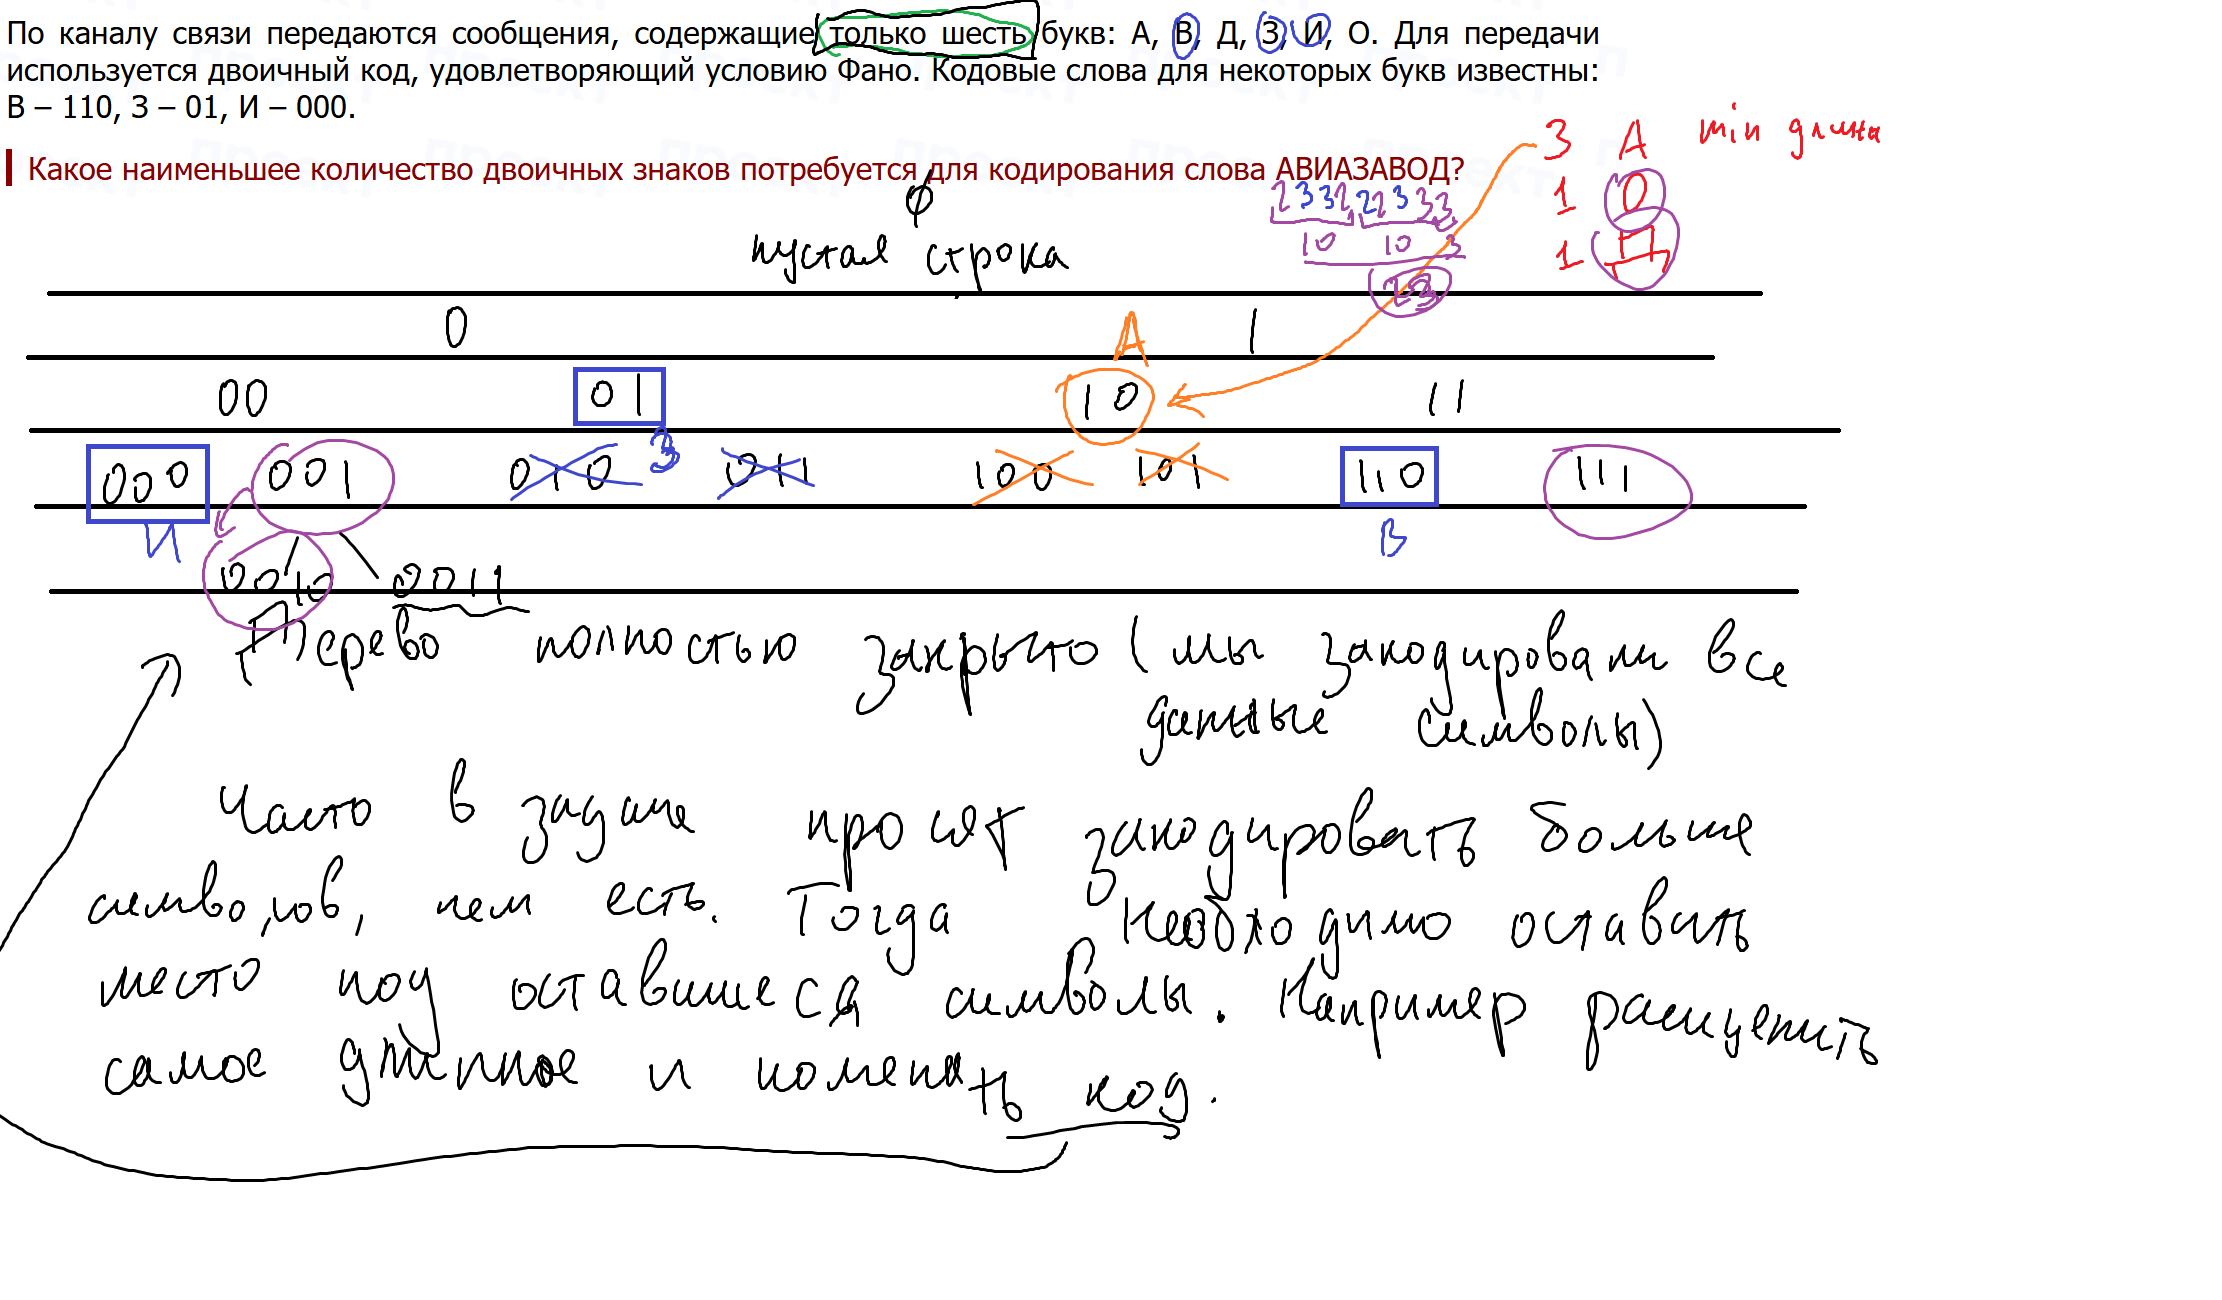 По каналу связи передаются сообщения, содержащие только шесть букв: А, В, Д, З, И, О. Для передачи
используется двоичный код, удовлетворяющий условию Фано. Кодовые слова для некоторых букв известны:
В – 110, З – 01, И – 000.
3 А min длина
Какое наименьшее количество двоичных знаков потребуется для кодирования слова АВИАЗАВОД?
1 О
2 3 3 2 2 2 3 3 3
ϕ
10 10 3
1 Д
пустая строка
23
0 А 1
00 01 10 11
000 001 010 З 011 100 101 110 111
И В
0010 0011
Дерево полностью закрыто (мы закодировали все
данные символы)
Часто в задаче просят закодировать больше
символов, чем есть. Тогда необходимо оставить
место под оставшиеся символы. Например расщепить
самое длинное и поменять код.